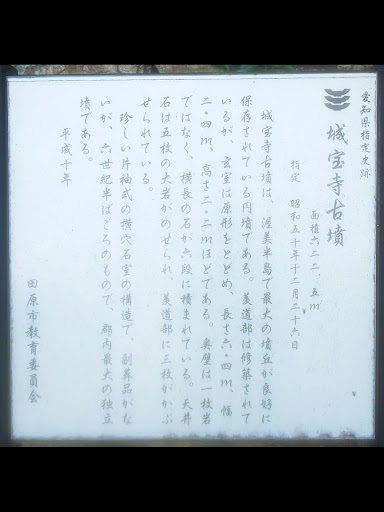 愛知県指定史跡
城宝寺古墳
面積六二二．五㎡
指定 昭和五十年十二月二十六日
城宝寺古墳は、渥美半島で最大の墳丘が良好に
保存されている円墳である。羨道部は修築されて
いるが、玄室は原形をとどめ、長さ六・四ｍ、幅
二・四ｍ、高さ二・二ｍほどである。奥壁は一枚岩
ではなく、横長の石が六段に積まれている。天井
石は五枚の大岩がのせられ、羨道部に三枚がかぶ
せられている。
珍しい片袖式の横穴石室の構造で、副葬品がな
いが、六世紀半ばごろのもので、郡内最大の独立
墳である。
平成十年
田原市教育委員会